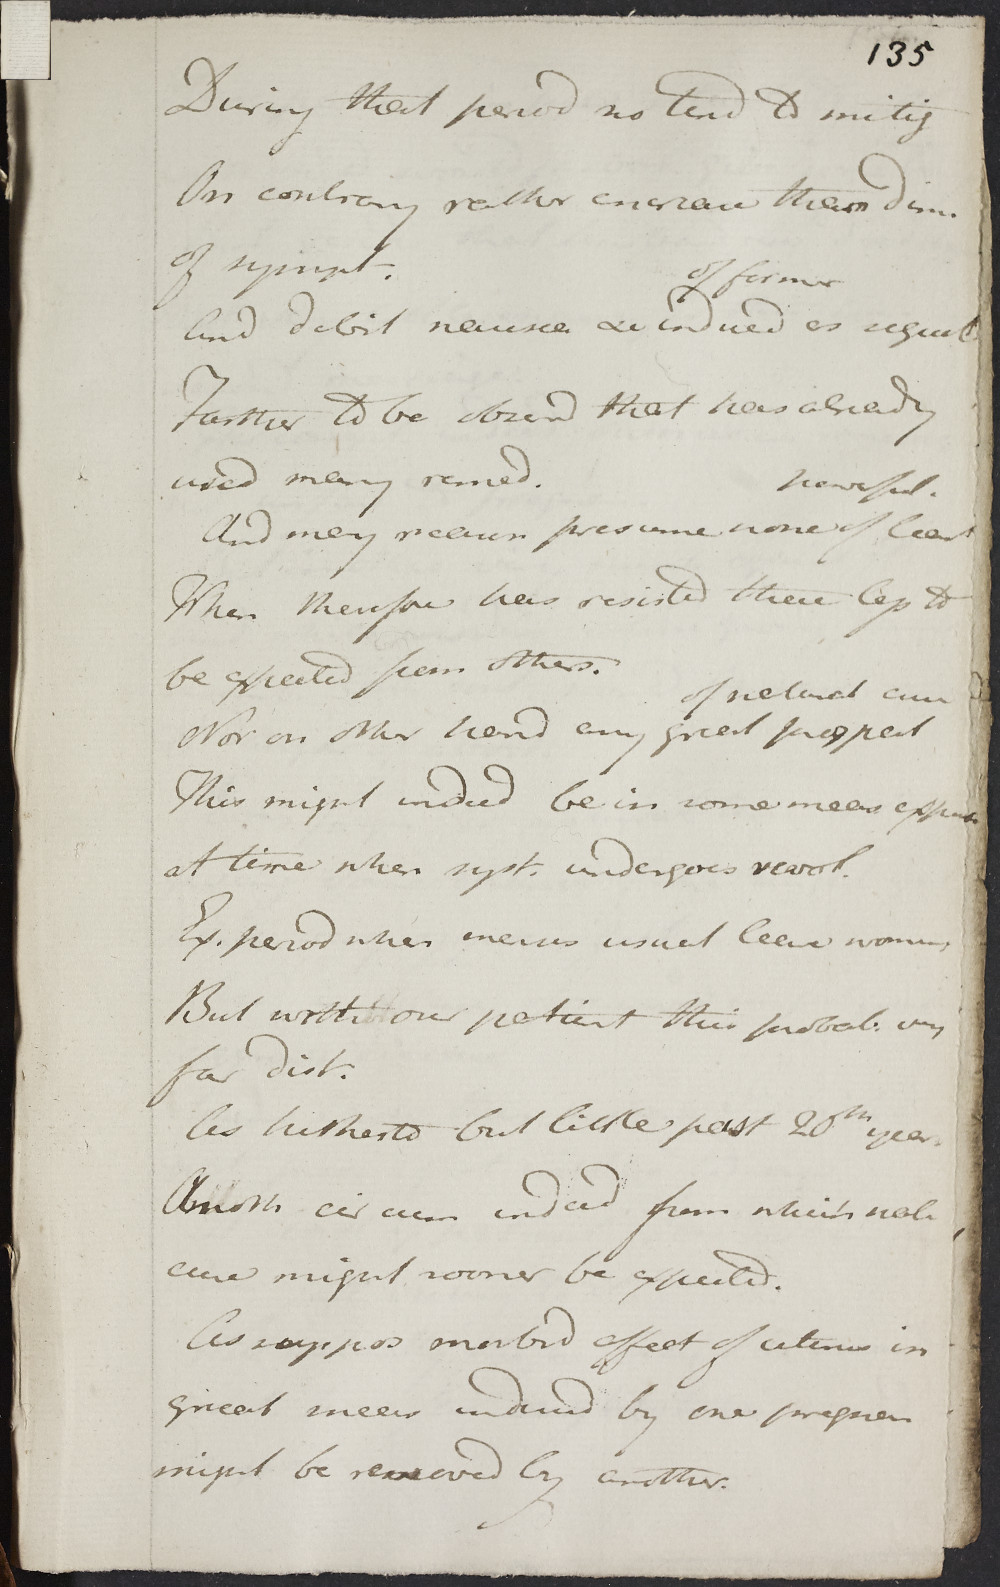 135
During that period no tend to mitig
On contrary rather encrease than dim.
of sympt.
of former
And debil nausea &c induced as urgent
Farther to be observd that has already
used many remed.
powerful.
And may reason presume none of least
When therefore has resisted these less to
be expected from others.
of natural cure
Nor on other hand any great prospect
This might indeed be in some meas expected
at time when syst. undergoes revol.
Ex. period when menses usual leave women
But with our patient this probab. very
far dist.
As hitherto but little past 20th year.
Anoth circum indeed from which nat
cure might sooner be expected.
As suppos morbid affect of uterus in
great meas induced by one pregnan
might be removed by another.